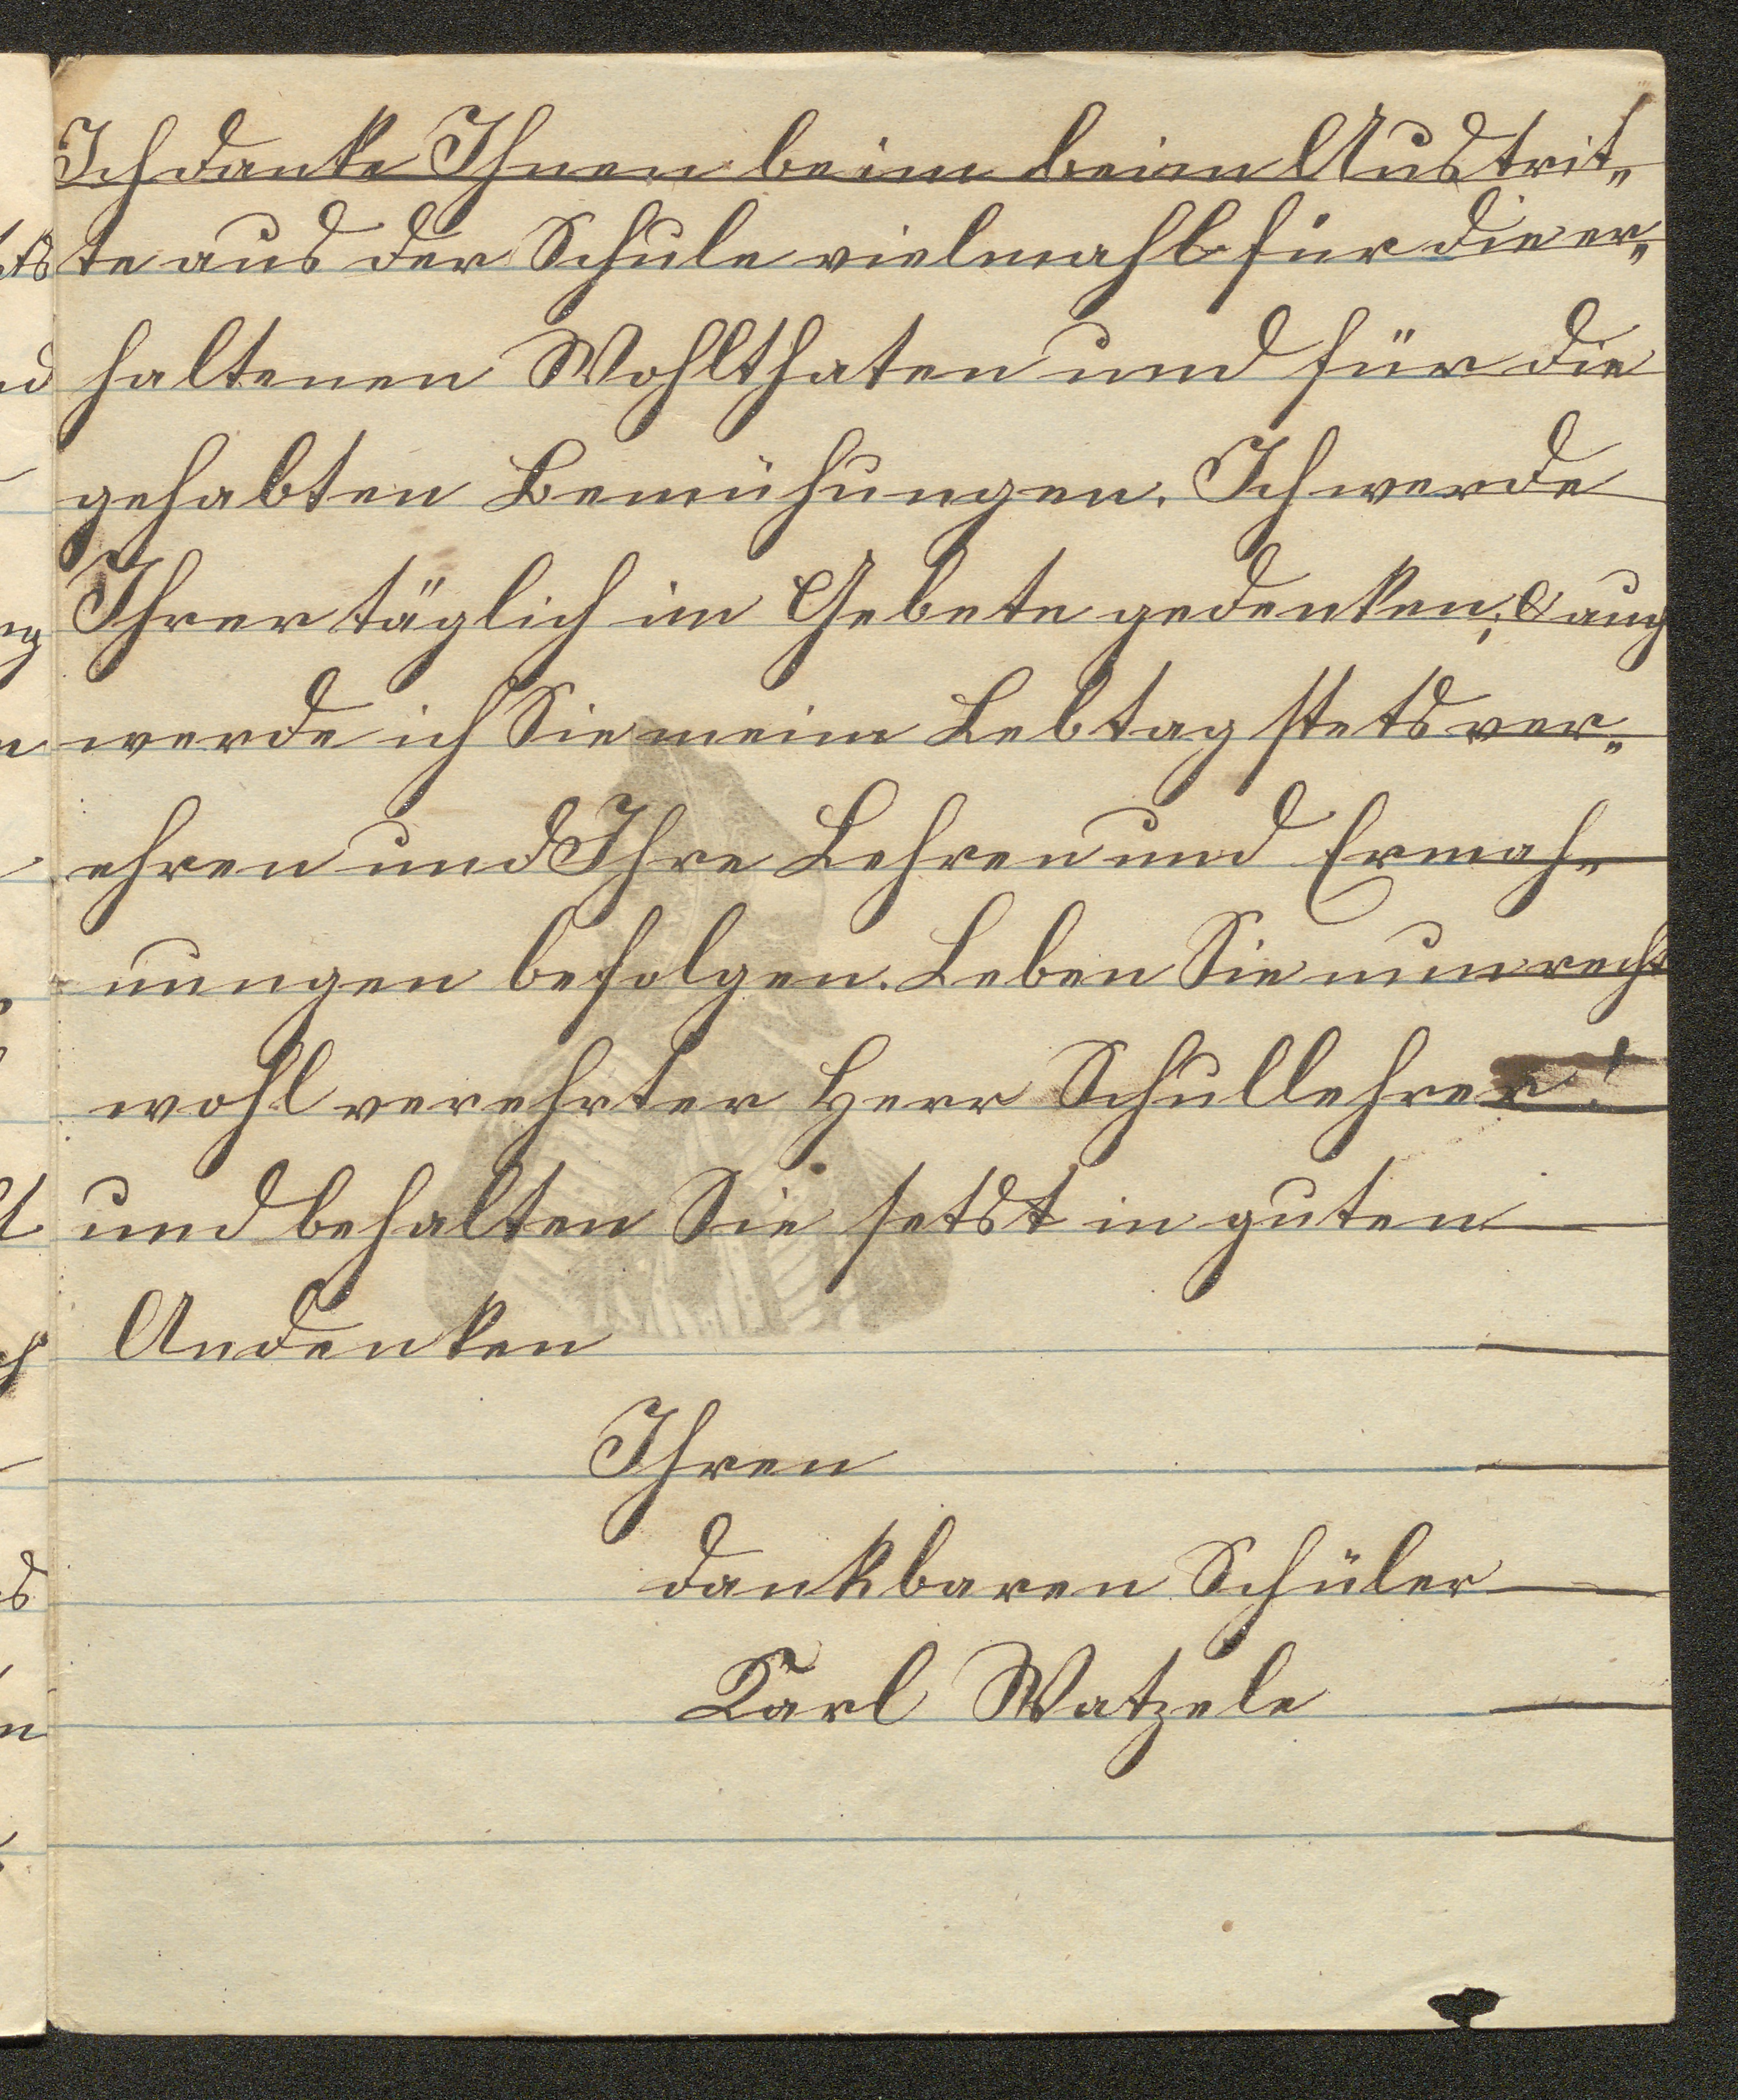 Ich danke Ihnen beim beim Austrit„
te aus der Schule vielmahls für die er„
haltenen Wohlthaten und für die
gehabten Bemühungen. Ich werde
Ihrer täglich im Gebete gedenken; & auch
werde ich Sie meim Lebtag stets ver„
ehren und Ihre Lehren und Ermah„
nungen befolgen. Leben Sie nun recht
wohl verehrter Herr Schullehrer!
und behalten Sie setst in guten
Andenken
Ihren
dankbaren Schüler
Karl Watzele